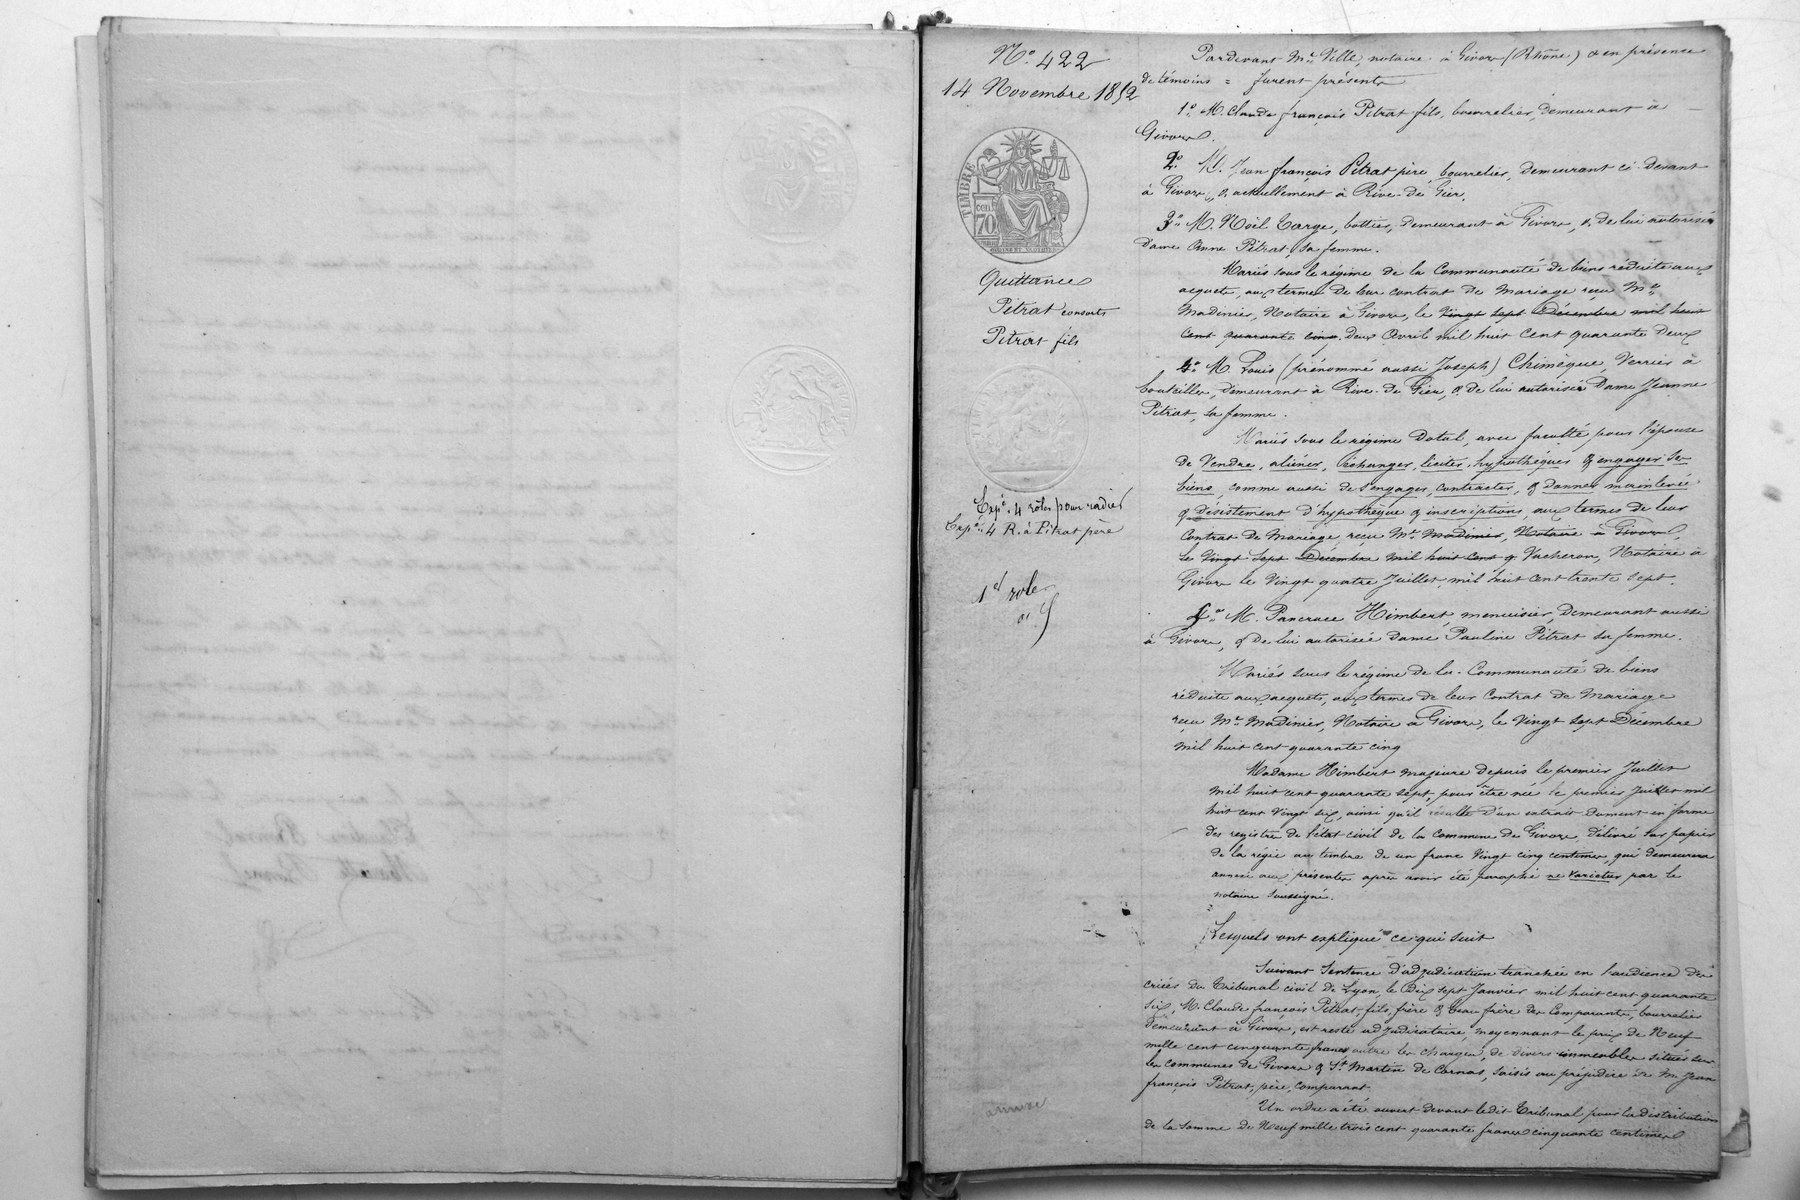 N° 422
14 Novembre 1852
TIMBRE
70
Quittance
Pitrat consorts
Pitrat fils
Exp.on 4 rôles pour radier
Exp.on 4 R. à Pitrat père
1er rôle
annexe
Pardevant Me Ville, notaire à Givors (Rhône) & en présence
de témoins = furent présents
1° M. Claude françois Pitrat fils, bourrelier, demeurant à
Givors.
2° M. Jean françois Pitrat père, bourrelier, demeurant ci-devant
à Givors, & actuellement à Rive-de-Gier.
3° M. Noël Targe, bottier, demeurant à Givors, & de lui autorisée
Dame Anne Pitrat, sa femme.
Mariés sous le régime de la Communauté de biens réduite aux
acquets, aux termes de leur contrat de mariage reçu Me
Madinier, Notaire à Givors, le vingt sept Décembre mil huit
cent quarante cinq Deux Avril mil huit cent quarante deux
4° M. Louis (prénommé aussi Joseph) Chimèque, Verrier à
bouteilles, demeurant à Rive-de-Gier, & de lui autorisée Dame Jeanne
Pitrat, sa femme.
Mariés sous le régime Dotal, avec faculté pour l'épouse
de Vendre, aliéner, échanger, liciter, hypothéquer & engager ses
biens, comme aussi de s'engager, contracter, & donner mainlevée
& désistement d'hypothèque & inscriptions aux termes de leur
Contrat de Mariage, reçu Me Madinier, Notaire à Givors,
le Vingt Sept Décembre mil huit cent q Vacheron, Notaire à
Givors le Vingt quatre Juillet, mil huit cent trente sept.
5° M. Pancrace Himbert, menuisier, Demeurant aussi
à Givors, & De lui autorisée Dame Pauline Pitrat sa femme.
Mariés sous le régime de la Communauté de biens
réduite aux acquets, aux termes de leur Contrat de Mariage
reçu Me Madinier, Notaire à Givors, le Vingt sept Décembre
mil huit cent quarante cinq
Madame Himbert majeure depuis le premier Juillet
mil huit cent quarante sept, pour être née le premier Juillet mil
huit cent vingt six, ainsi qu'il résulte d'un extrait dument en forme
des registres de l'état civil de la commune de Givors délivré sur papier
de la régie au timbre de un franc vingt cinq centimes, qui demeurera
annexé aux présentes après avoir été paraphé ne varietur par le
notaire soussigné.
Lesquels ont expliqué ce qui suit
Suivant Sentence d'adjudication tranchée en l'audience des
criées du Tribunal civil de Lyon, le dix sept Janvier mil huit cent quarante
six, M. Claude françois Pitrat fils, frère & beau frère des Comparants, bourrelier
demeurant à Givors, est resté adjudicataire, moyennant le prix de Neuf
mille cent cinquante francs outre les charges, de divers immeubles situés sur
les communes de Givors & St Martin de Cornas, saisis au préjudice de M. Jean
françois Pitrat, père, comparant.
Un ordre a été ouvert devant ledit Tribunal pour la distribution
de la somme de Neuf mille trois cent quarante francs cinquante centimes